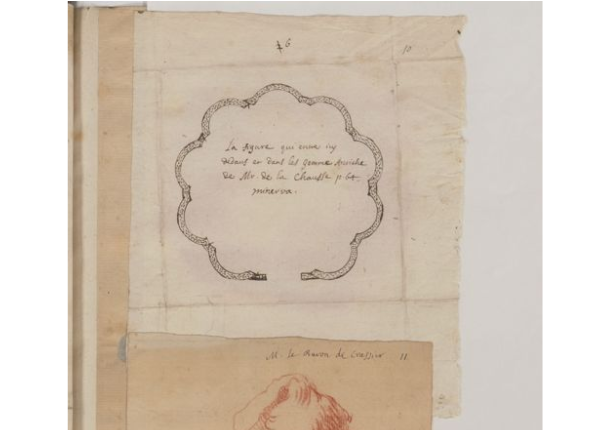 6
10
La figure qui entre icy
dedans est dans les gemme Antiche
de Mr. de la Chausse p. 64.
minerva.
M. le Baron de Crassier 11